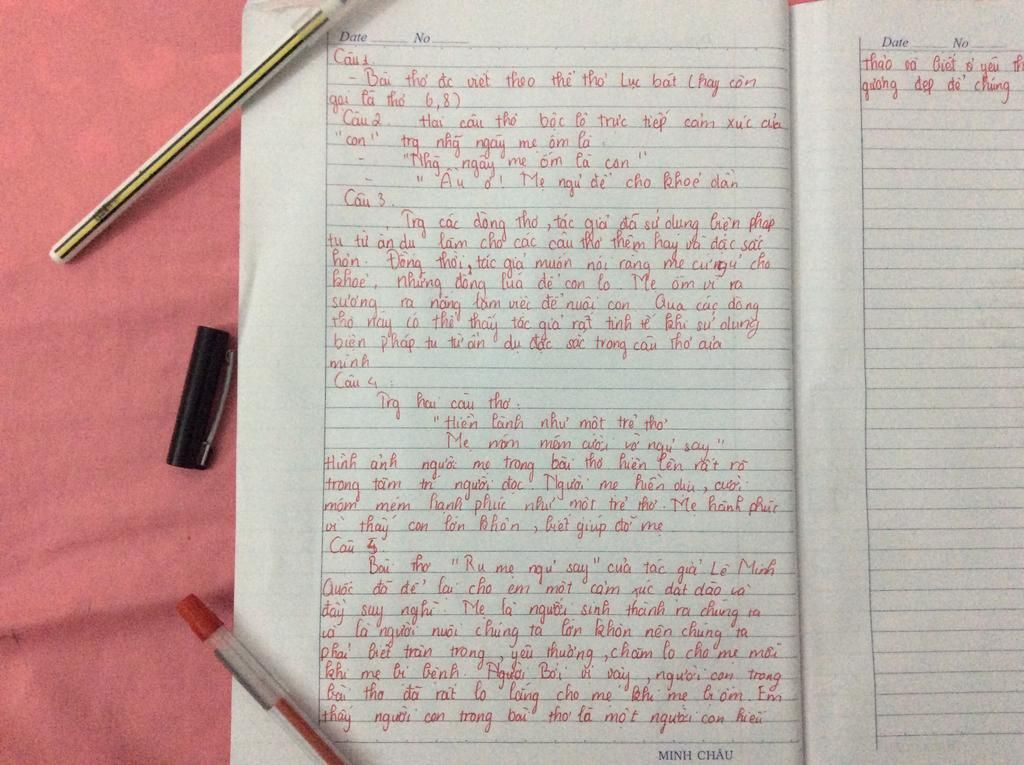 Date No
Câu 1.
- Bài thơ đc viết theo thể thơ Lục bát (hay còn
gọi là thơ 6,8)
Câu 2 Hai câu thơ bộc lộ trực tiếp cảm xúc của
"con" trg nhg ngày mẹ ốm là :
- "Nhg ngày mẹ ốm là con"
- "Ầu ơ! Mẹ ngủ để cho khoẻ dần
Câu 3.
Trg các dòng thơ, tác giả đã sử dụng biện pháp
tu từ ẩn dụ làm cho các câu thơ thêm hay và đặc sắc
hơn. Đồng thời, tác giả muốn nói rằng mẹ cứ ngủ cho
khoẻ, những đồng lúa để con lo. Mẹ ốm vì ra
sương ra nắng làm việc để nuôi con. Qua các dòng
thơ này có thể thấy tác giả rất tinh tế khi sử dụng
biện pháp tu từ ẩn dụ đặc sắc trong câu thơ của
mình
Câu 4 :
Trg hai câu thơ :
"Hiền lành như một trẻ thơ
Mẹ móm mém cười vờ ngủ say"
Hình ảnh người mẹ trong bài thơ hiện lên rất rõ
trong tâm trí người đọc. Người mẹ hiền dịu, cười
móm mém hạnh phúc như một trẻ thơ. Mẹ hành phúc
vì thấy con lớn khôn, biết giúp đỡ mẹ
Câu 5.
Bài thơ "Ru mẹ ngủ say" của tác giả Lê Minh
Quốc đã để lại cho em một cảm xúc dạt dào và
đầy suy nghĩ. Mẹ là người sinh thành ra chúng ta
và là người nuôi chúng ta lớn khôn nên chúng ta
phải biết trân trọng, yêu thương, chăm lo cho mẹ mỗi
khi mẹ bị bệnh. Bởi vì vậy, người con trong
bài thơ đã rất lo lắng cho mẹ khi mẹ bị ốm. Em
thấy người con trong bài thơ là một người con hiếu
MINH CHÂU
Date No
thảo và biết yêu
gương đẹp để chúng